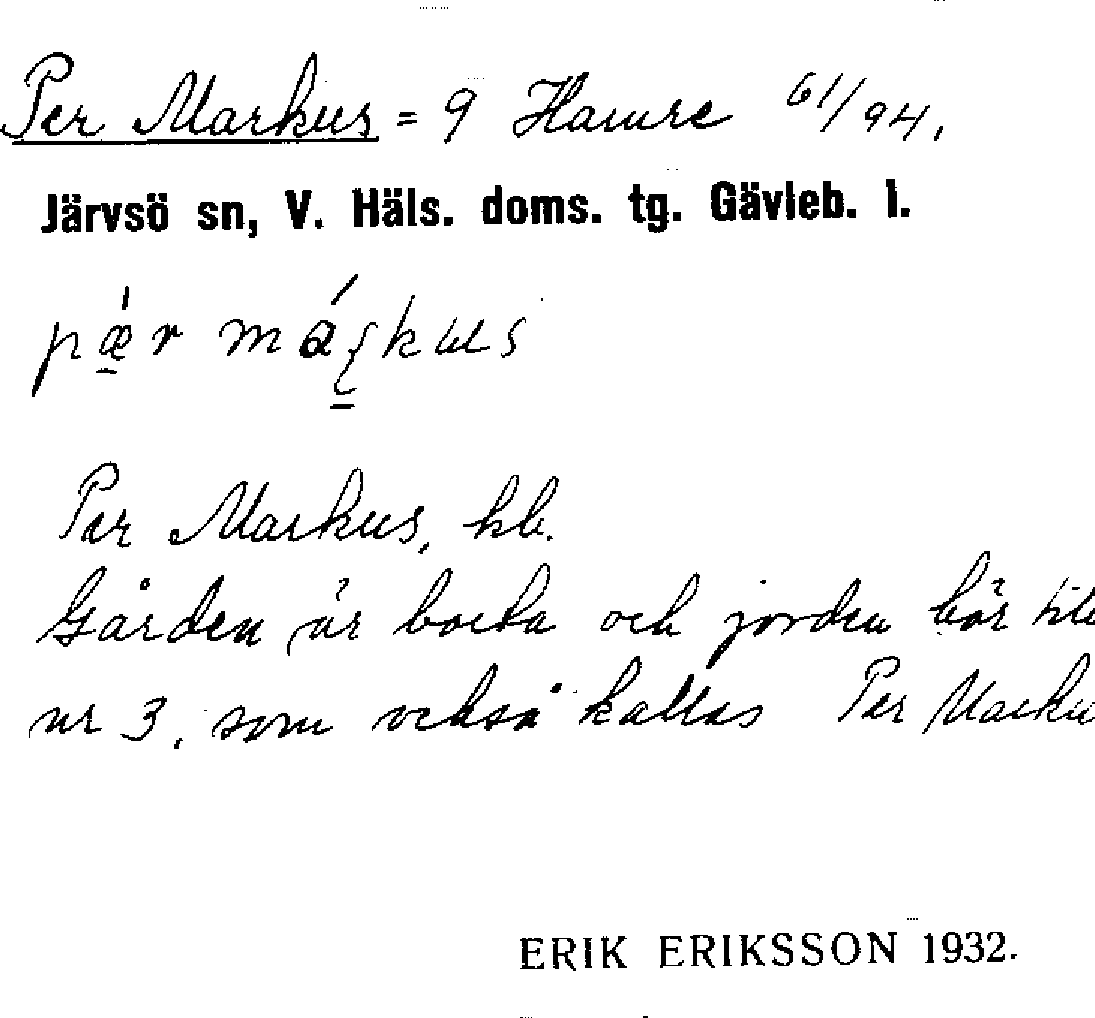 Per Markus = 9 Hamre 61/94,
Järvsö sn, V. Häls. doms. tg. Gävleb. l.
pǽr márkus
Per Markus, kb.
Gården är borta och jorden hör till
nr 3, som också kallas Per Marku
ERIK ERIKSSON 1932.